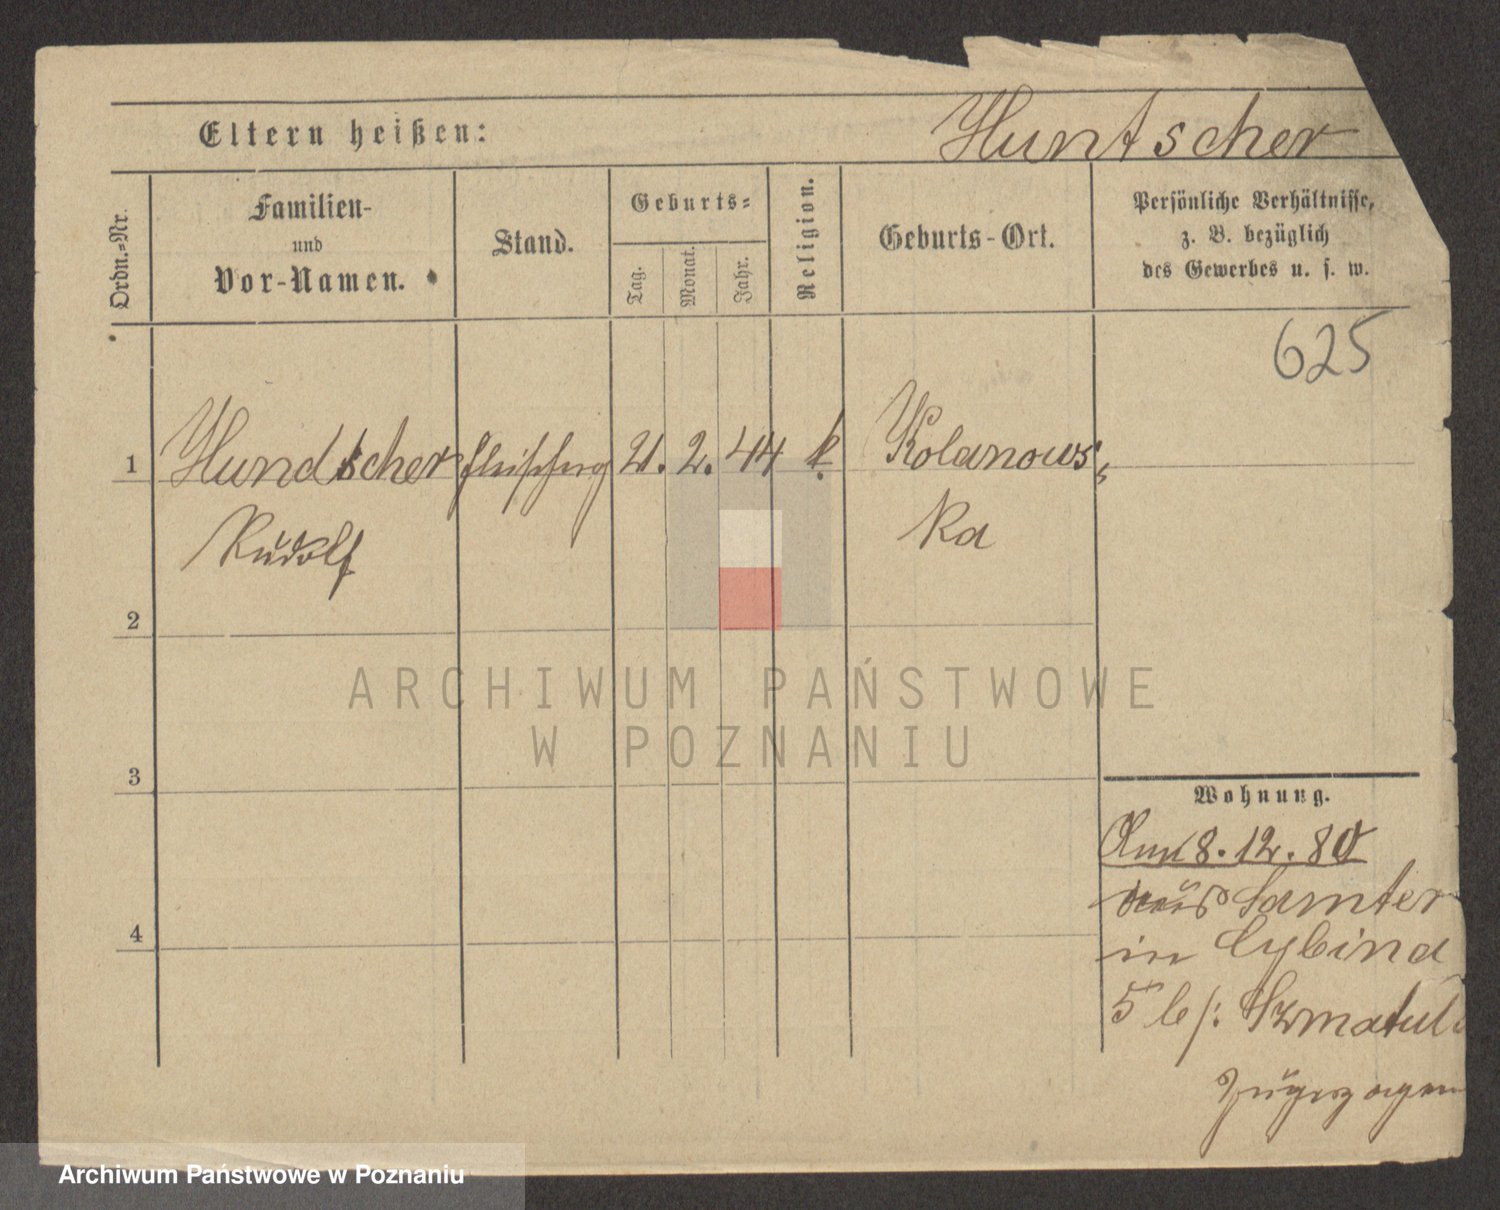 Eltern heißen:
Huntscher
Ordn.-Nr.
Familien-
und
Vor-Namen.
Stand.
Geburts-
Tag.
Monat.
Jahr.
Religion.
Geburts-Ort.
Persönliche Verhältnisse,
z. B. bezüglich
des Gewerbes u. s. w.
625
1
Hundscher
21. 2. 44 k.
Kolanows-
Rudolf
ka
2
ARCHIWUM PAŃSTWOWE
W POZNANIU
3
Wohnung.
Am 8.12.80
aus Samter
in Cybina
4
5 b/:
zugezogen
Archiwum Państwowe w Poznaniu